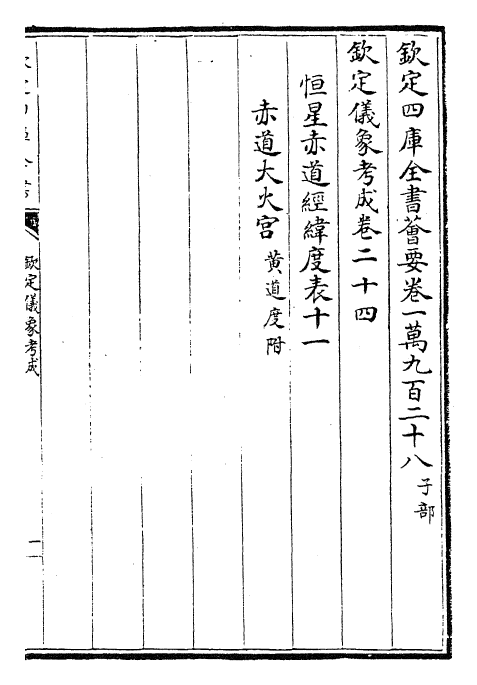 欽定四庫全書薈要卷一萬九百二十八子部
欽定儀象考成卷二十四
恒星赤道經緯度表十一
赤道大火宫黄道度附
欽定儀象考成
一